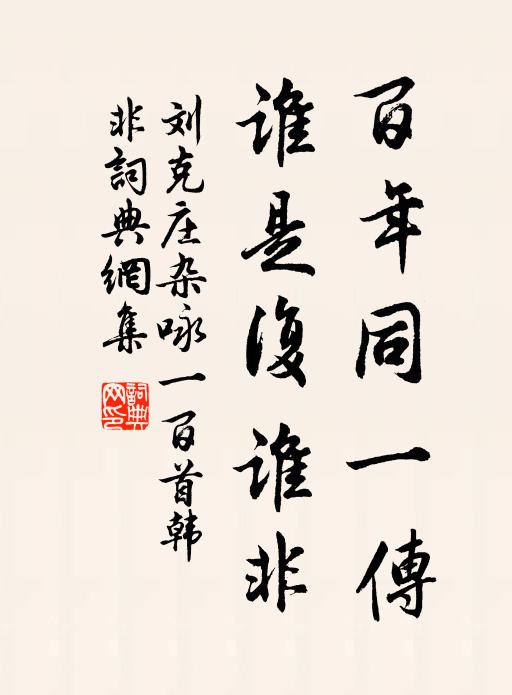 百年同一傳
誰是復誰非
刘克庄杂咏一百首韩
非詞典網集
詞典
网印